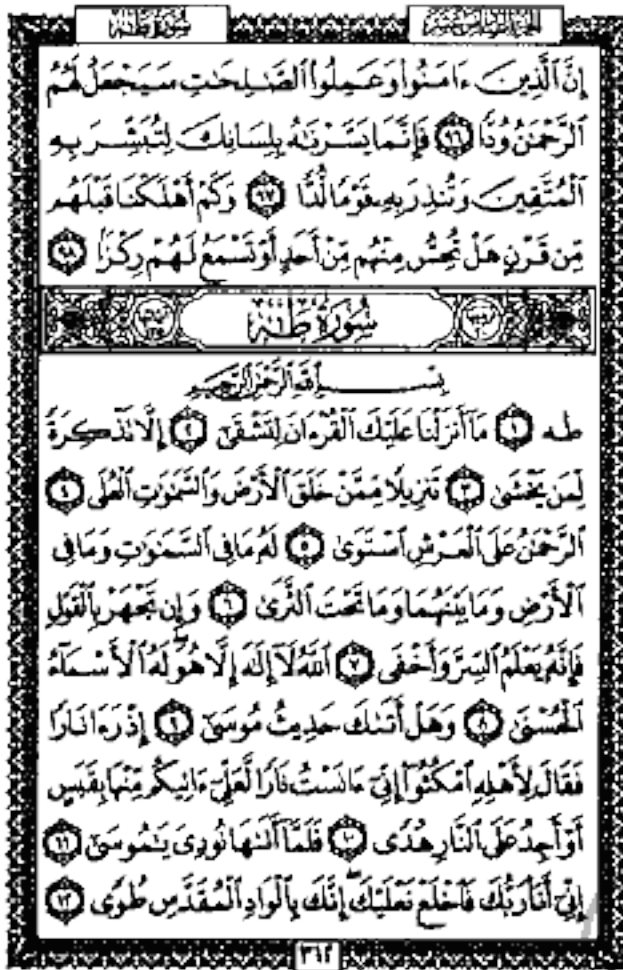 سُورَةُ طه الجزء السادس عشر
إِنَّ ٱلَّذِينَ ءَامَنُوا۟ وَعَمِلُوا۟ ٱلصَّـٰلِحَـٰتِ سَيَجْعَلُ لَهُمُ
ٱلرَّحْمَـٰنُ وُدًّا ٩٦ فَإِنَّمَا يَسَّرْنَـٰهُ بِلِسَانِكَ لِتُبَشِّرَ بِهِ
ٱلْمُتَّقِينَ وَتُنذِرَ بِهِۦ قَوْمًا لُّدًّا ٩٧ وَكَمْ أَهْلَكْنَا قَبْلَهُم
مِّن قَرْنٍ هَلْ تُحِسُّ مِنْهُم مِّنْ أَحَدٍ أَوْ تَسْمَعُ لَهُمْ رِكْزًۢا ٩٨
سُورَةُ طه
بِسْمِ ٱللَّهِ ٱلرَّحْمَـٰنِ ٱلرَّحِيمِ
طه ١ مَآ أَنزَلْنَا عَلَيْكَ ٱلْقُرْءَانَ لِتَشْقَىٰٓ ٢ إِلَّا تَذْكِرَةً
لِّمَن يَخْشَىٰ ٣ تَنزِيلًا مِّمَّنْ خَلَقَ ٱلْأَرْضَ وَٱلسَّمَـٰوَٰتِ ٱلْعُلَى ٤
ٱلرَّحْمَـٰنُ عَلَى ٱلْعَرْشِ ٱسْتَوَىٰ ٥ لَهُۥ مَا فِى ٱلسَّمَـٰوَٰتِ وَمَا فِى
ٱلْأَرْضِ وَمَا بَيْنَهُمَا وَمَا تَحْتَ ٱلثَّرَىٰ ٦ وَإِن تَجْهَرْ بِٱلْقَوْلِ
فَإِنَّهُۥ يَعْلَمُ ٱلسِّرَّ وَأَخْفَى ٧ ٱللَّهُ لَآ إِلَـٰهَ إِلَّا هُوَ ۖ لَهُ ٱلْأَسْمَآءُ
ٱلْحُسْنَىٰ ٨ وَهَلْ أَتَىٰكَ حَدِيثُ مُوسَىٰٓ ٩ إِذْ رَءَا نَارًا
فَقَالَ لِأَهْلِهِ ٱمْكُثُوٓا۟ إِنِّىٓ ءَانَسْتُ نَارًا لَّعَلِّىٓ ءَاتِيكُم مِّنْهَا بِقَبَسٍ
أَوْ أَجِدُ عَلَى ٱلنَّارِ هُدًى ١٠ فَلَمَّآ أَتَىٰهَا نُودِىَ يَـٰمُوسَىٰٓ ١١
إِنِّىٓ أَنَا۠ رَبُّكَ فَٱخْلَعْ نَعْلَيْكَ ۖ إِنَّكَ بِٱلْوَادِ ٱلْمُقَدَّسِ طُوًى ١٢
٣١٢